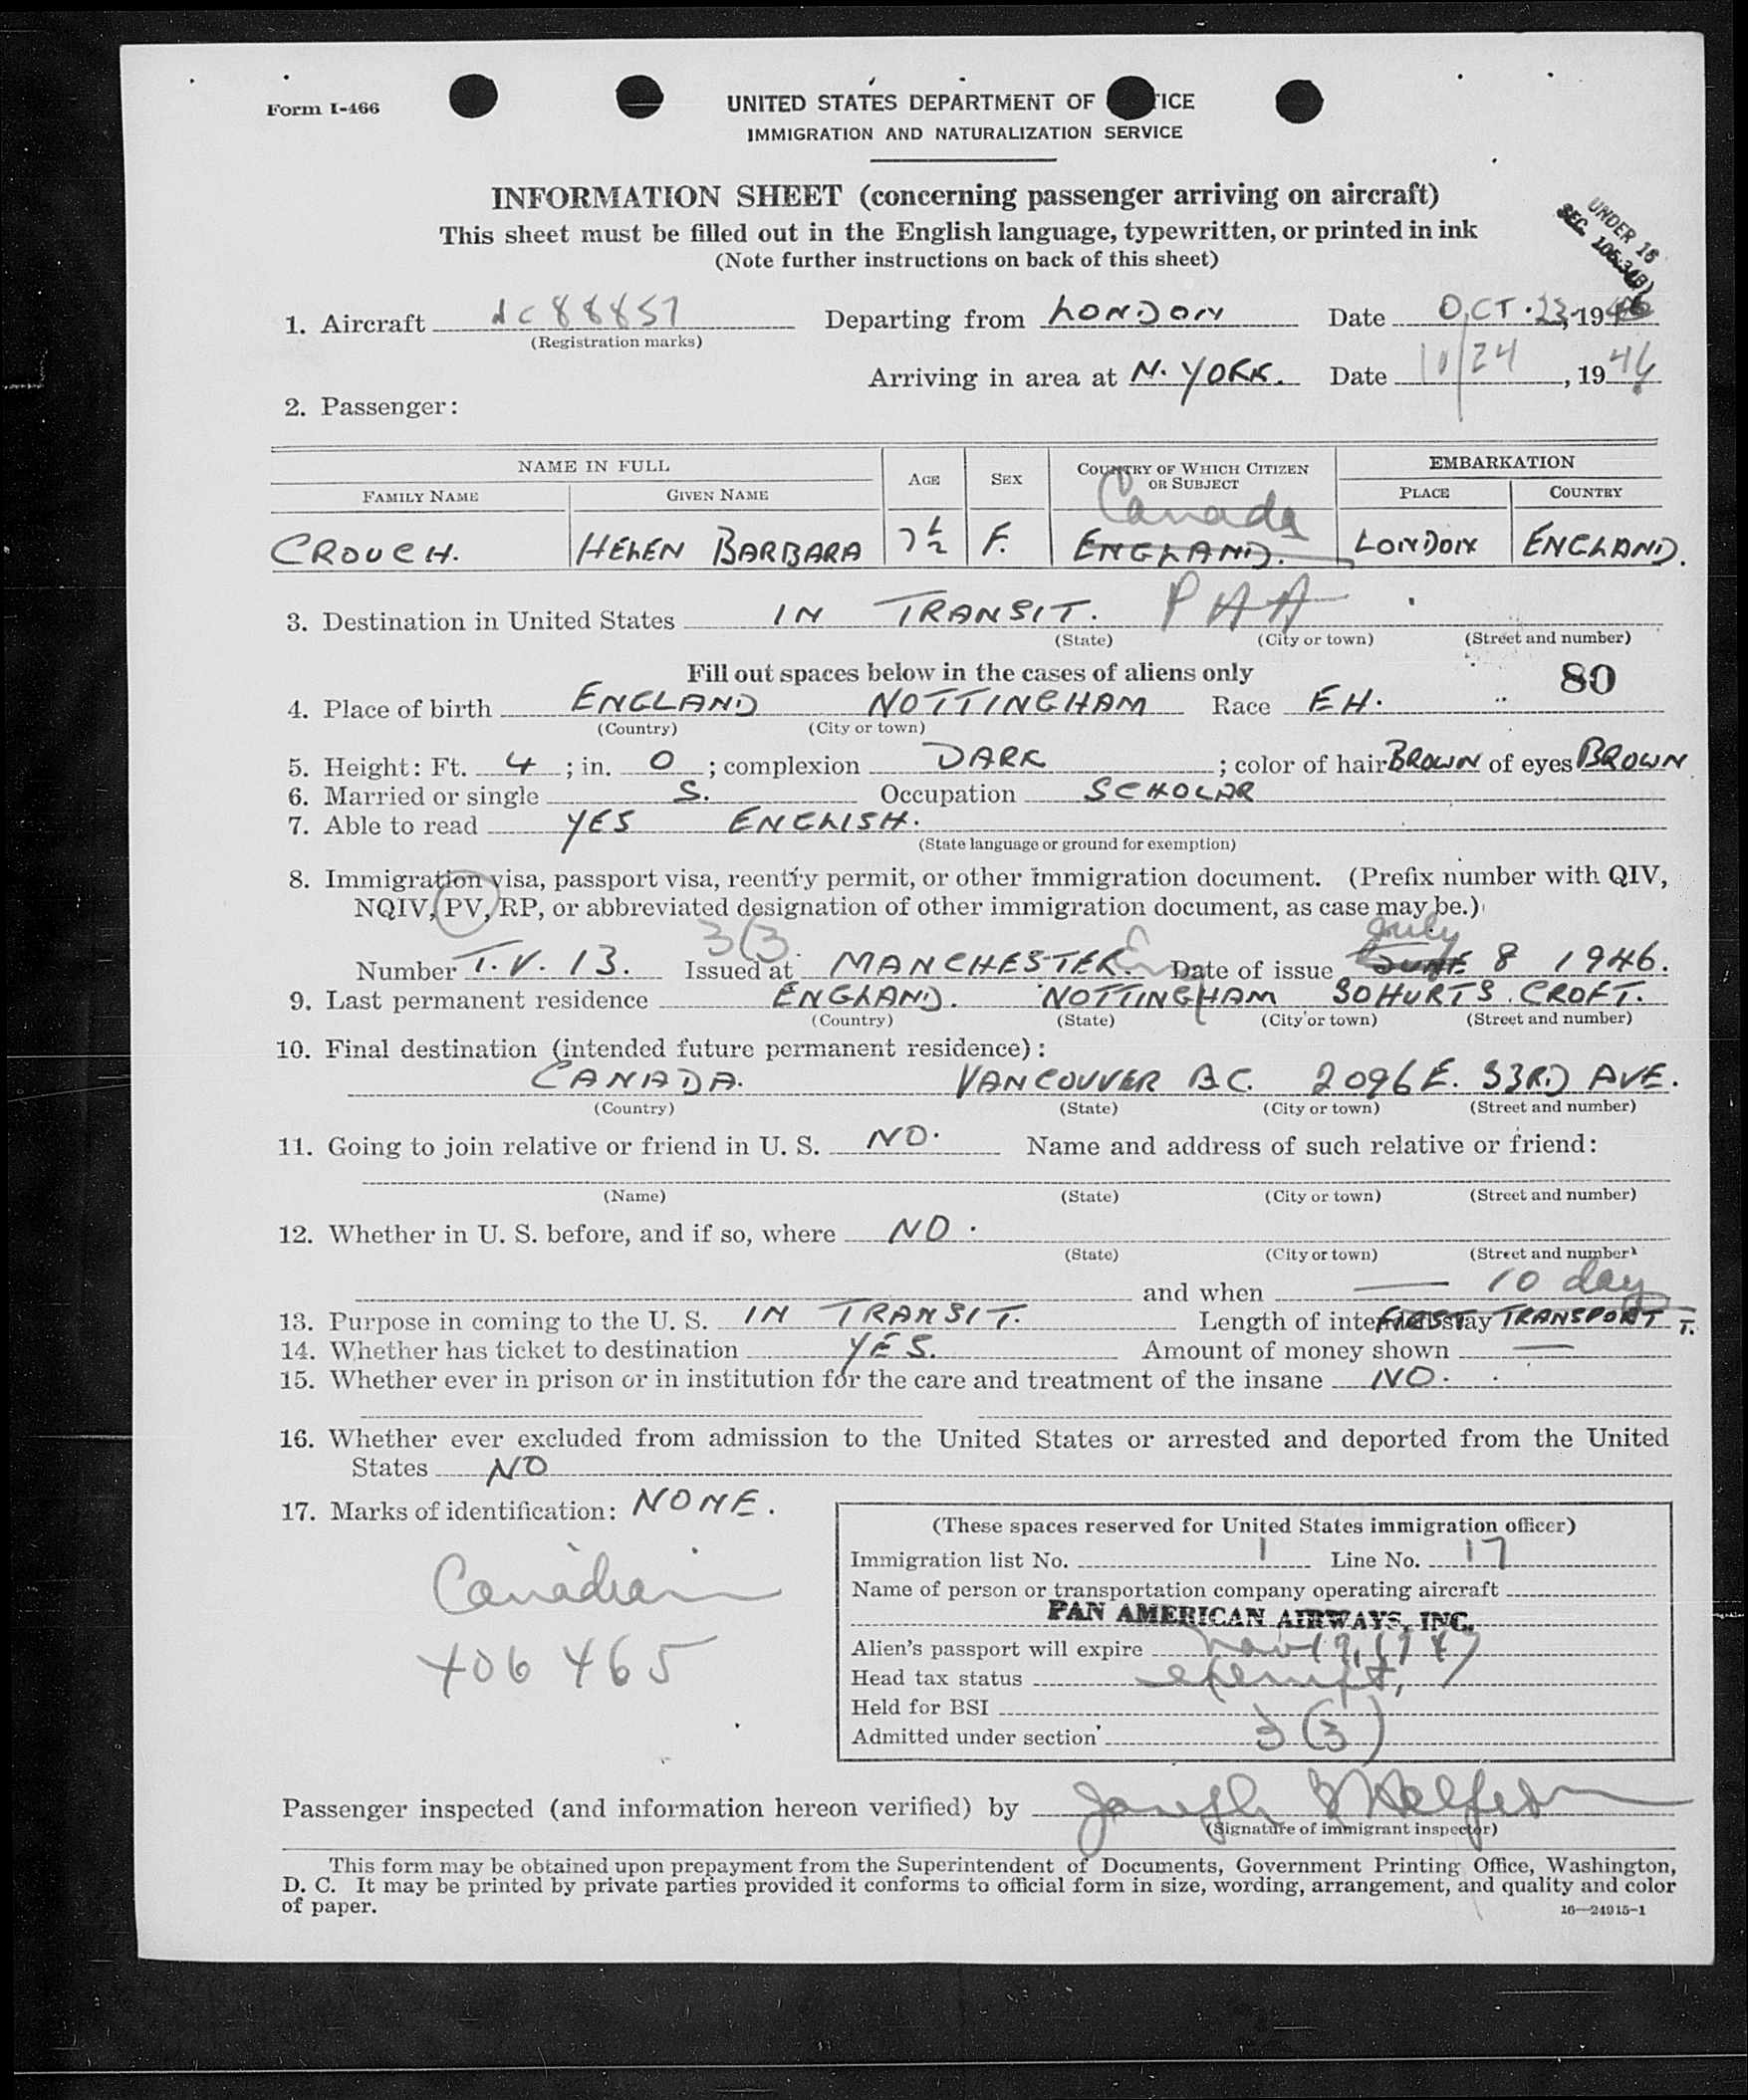 Form I-466
UNITED STATES DEPARTMENT OF TICE
IMMIGRATION AND NATURALIZATION SERVICE
INFORMATION SHEET (concerning passenger arriving on aircraft)
This sheet must be filled out in the English language, typewritten, or printed in ink
(Note further instructions on back of this sheet)
UNDER 16
SEC. 105.34(B)
1. Aircraft Nc 88857 Departing from LONDON Date OCT. 23, 1946
(Registration marks)
Arriving in area at N. YORK. Date 10/24, 1946
2. Passenger:
NAME IN FULL AGE SEX COUNTRY OF WHICH CITIZEN OR SUBJECT EMBARKATION
FAMILY NAME GIVEN NAME PLACE COUNTRY
Canada
CROUCH. HELEN BARBARA 7 1/2 F. ENGLAND. LONDON ENGLAND.
3. Destination in United States IN TRANSIT. PAA
(State) (City or town) (Street and number)
Fill out spaces below in the cases of aliens only
80
4. Place of birth ENGLAND NOTTINGHAM Race EH.
(Country) (City or town)
5. Height: Ft. 4; in. 0; complexion DARK; color of hair BROWN of eyes BROWN
6. Married or single S. Occupation SCHOLAR
7. Able to read YES ENGLISH.
(State language or ground for exemption)
8. Immigration visa, passport visa, reentry permit, or other immigration document. (Prefix number with QIV,
NQIV, PV, RP, or abbreviated designation of other immigration document, as case may be.)
3(3) July
Number T.V. 13. Issued at MANCHESTER. E Date of issue JUNE 8 1946.
9. Last permanent residence ENGLAND. NOTTINGHAM 30 HURTS CROFT.
(Country) (State) (City or town) (Street and number)
10. Final destination (intended future permanent residence):
CANADA. VANCOUVER B.C. 2096 E. 33RD AVE.
(Country) (State) (City or town) (Street and number)
11. Going to join relative or friend in U. S. NO. Name and address of such relative or friend:
(Name) (State) (City or town) (Street and number)
12. Whether in U. S. before, and if so, where NO.
(State) (City or town) (Street and number)
and when — 10 day
13. Purpose in coming to the U. S. IN TRANSIT. Length of intended stay FIRST TRANSPORT T.
14. Whether has ticket to destination YES. Amount of money shown —
15. Whether ever in prison or in institution for the care and treatment of the insane NO.
16. Whether ever excluded from admission to the United States or arrested and deported from the United
States NO
17. Marks of identification: NONE.
Canadian
406465
(These spaces reserved for United States immigration officer)
Immigration list No. 1 Line No. 17
Name of person or transportation company operating aircraft
PAN AMERICAN AIRWAYS, INC.
Alien's passport will expire Nov 19, 1947
Head tax status exempt,
Held for BSI
Admitted under section 3(3)
Passenger inspected (and information hereon verified) by Joseph
(Signature of immigrant inspector)
This form may be obtained upon prepayment from the Superintendent of Documents, Government Printing Office, Washington,
D. C. It may be printed by private parties provided it conforms to official form in size, wording, arrangement, and quality and color
of paper.
16—24915-1